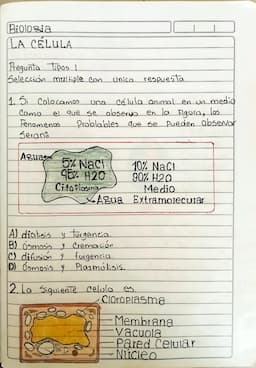 Biología
LA CÉLULA
Pregunta Tipos 1
Selección multiple con unica respuesta
1. Si colocamos una célula animal en un medio
Como el que se observa en la figura, los
Fenomenos Problables que se Pueden observar
Serán:
Agua
5% NaCl
95% H2O
Citoplasma
10% NaCl
90% H2O
Medio
Agua Extramolecular
A) dialisis y turgencia.
B) ósmosis y Cremación
C) difusión y turgencia
D) Ósmosis y Plasmólisis.
2. La siguiente célula es
Cloroplasma
Membrana
Vacuola
Pared Celular
Núcleo